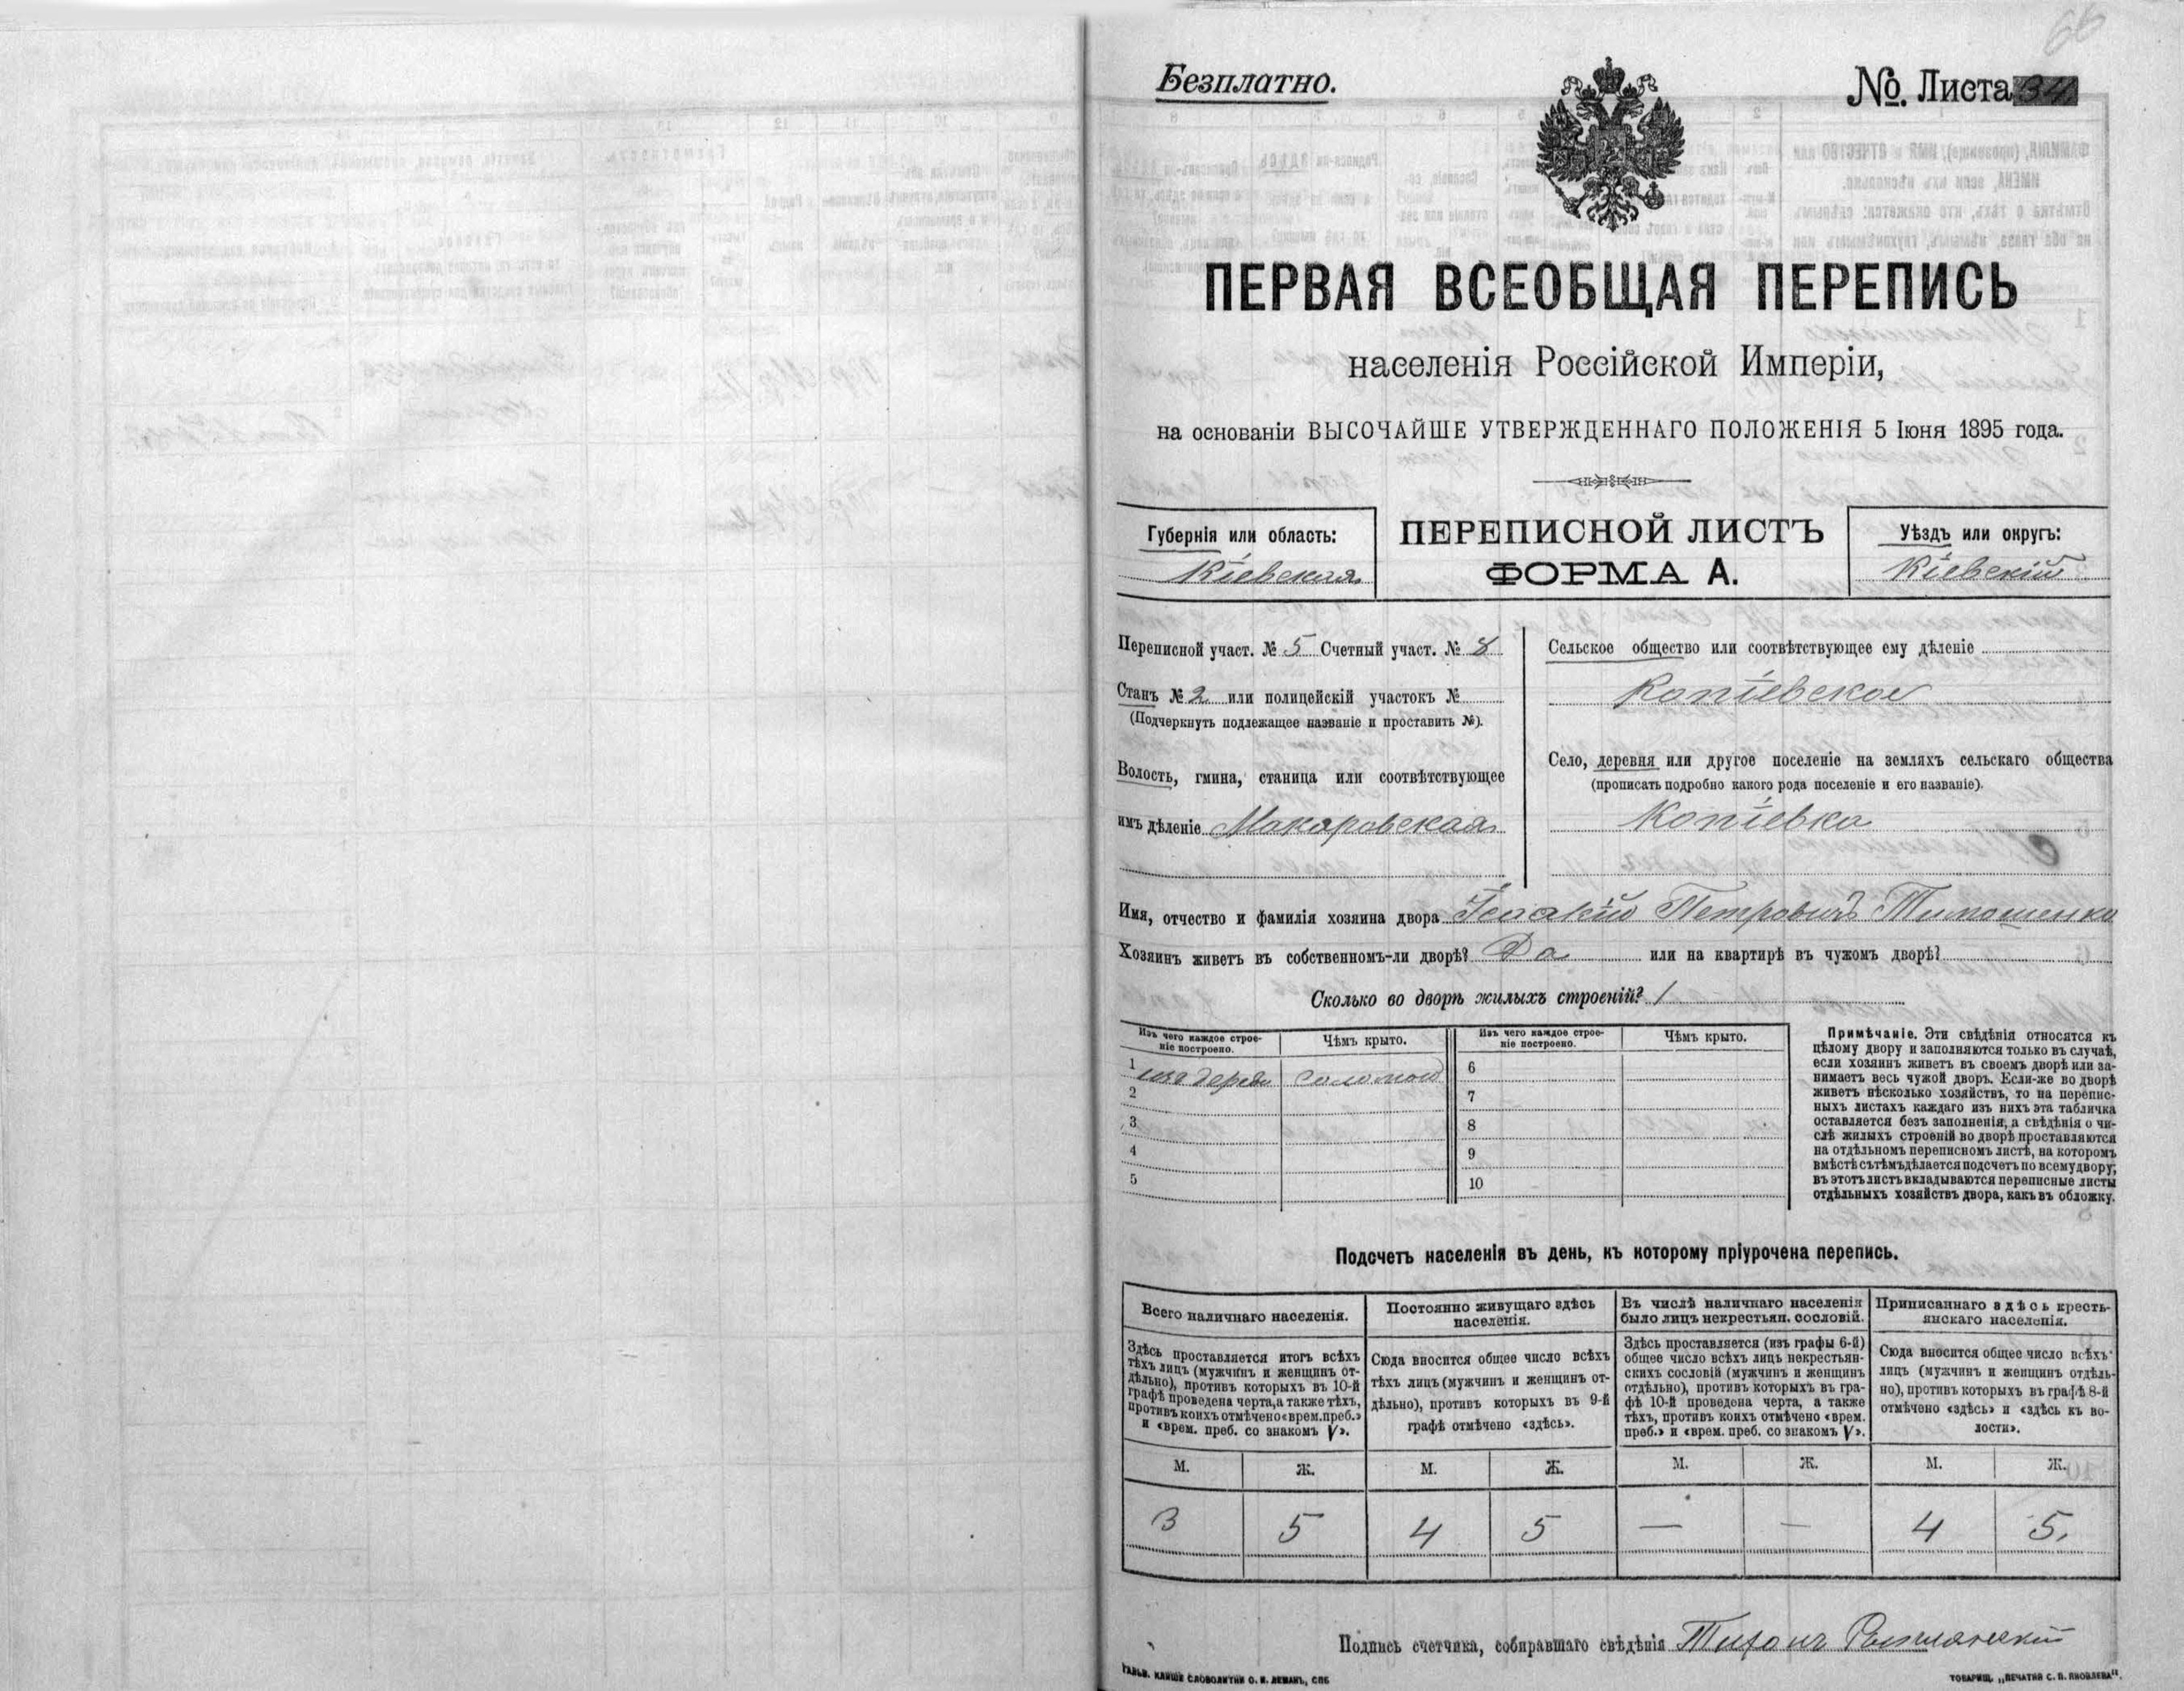 66
Безплатно.
№. Листа 34
ПЕРВАЯ ВСЕОБЩАЯ ПЕРЕПИСЬ
населенія Россійской Имперіи,
на основаніи ВЫСОЧАЙШЕ УТВЕРЖДЕННАГО ПОЛОЖЕНІЯ 5 Іюня 1895 года.
Губернія или область:
Кіевская
ПЕРЕПИСНОЙ ЛИСТЪ
ФОРМА А.
Уѣздъ или округъ:
Кіевскій
Переписной участ. № 5 Счетный участ. № 8
Станъ № 2 или полицейскій участокъ №
(Подчеркнуть подлежащее названіе и проставить №).
Волость, гмина, станица или соотвѣтствующее
имъ дѣленіе Макаровская
Сельское общество или соотвѣтствующее ему дѣленіе
Копіевское
Село, деревня или другое поселеніе на земляхъ сельскаго общества
(прописать подробно какого рода поселеніе и его названіе).
Копіевка
Имя, отчество и фамилія хозяина двора Ісаакій Петровичъ Тимошенко
Хозяинъ живетъ въ собственномъ-ли дворѣ? Да или на квартирѣ въ чужомъ дворѣ?
Сколько во дворѣ жилыхъ строеній? 1
Изъ чего каждое строе-
ніе построено.
Чѣмъ крыто.
1 изъ дерева соломою
2
3
4
5
Изъ чего каждое строе-
ніе построено.
Чѣмъ крыто.
6
7
8
9
10
Примѣчаніе. Эти свѣдѣнія относятся къ
цѣлому двору и заполняются только въ случаѣ,
если хозяинъ живетъ въ своемъ дворѣ или за-
нимаетъ весь чужой дворъ. Если-же во дворѣ
живетъ нѣсколько хозяйствъ, то на перепис-
ныхъ листахъ каждаго изъ нихъ эта табличка
оставляется безъ заполненія, а свѣдѣнія о чи-
слѣ жилыхъ строеній во дворѣ проставляются
на отдѣльномъ переписномъ листѣ, на которомъ
вмѣстѣ съ тѣмъ дѣлается подсчетъ по всему двору;
въ этотъ листъ вкладываются переписные листы
отдѣльныхъ хозяйствъ двора, какъ въ обложку.
Подсчетъ населенія въ день, къ которому пріурочена перепись.
Всего наличнаго населенія.
Здѣсь проставляется итогъ всѣхъ
тѣхъ лицъ (мужчинъ и женщинъ от-
дѣльно), противъ которыхъ въ 10-й
графѣ проведена черта, а также тѣхъ,
противъ коихъ отмѣчено «врем. преб.»
и «врем. преб. со знакомъ V».
М. Ж.
3 5
Постоянно живущаго здѣсь
населенія.
Сюда вносится общее число всѣхъ
тѣхъ лицъ (мужчинъ и женщинъ от-
дѣльно), противъ которыхъ въ 9-й
графѣ отмѣчено «здѣсь».
М. Ж.
4 5
Въ числѣ наличнаго населенія
было лицъ некрестьян. сословій.
Здѣсь проставляется (изъ графы 6-й)
общее число всѣхъ лицъ некрестьян-
скихъ сословій (мужчинъ и женщинъ
отдѣльно), противъ которыхъ въ гра-
фѣ 10-й проведена черта, а также
тѣхъ, противъ коихъ отмѣчено «врем.
преб.» и «врем. преб. со знакомъ V».
М. Ж.
— —
Приписаннаго здѣсь кресть-
янскаго населенія.
Сюда вносится общее число всѣхъ
лицъ (мужчинъ и женщинъ отдѣль-
но), противъ которыхъ въ графѣ 8-й
отмѣчено «здѣсь» и «здѣсь къ во-
лости».
М. Ж.
4 5.
Подпись счетчика, собиравшаго свѣдѣнія Тихонъ
ГАЛЬВ. КЛИШЕ СЛОВОЛИТНИ О. И. ЛЕМАНЪ, СПБ
ТОВАРИЩ. „ПЕЧАТНЯ С. П. ЯКОВЛЕВА".